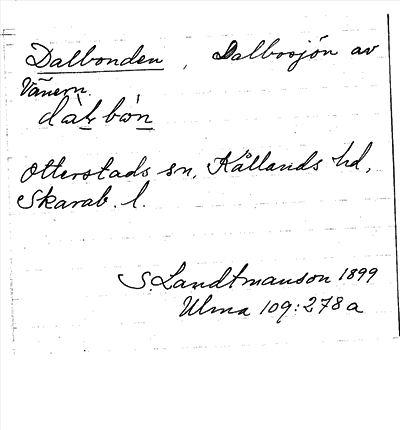 Dalbonden, Dalbosjön av
Vänern.
dàḻbón̲
Otterstads sn, Kållands hd,
Skarab. l.
S. Landtmanson 1899
Ulma 109:278a